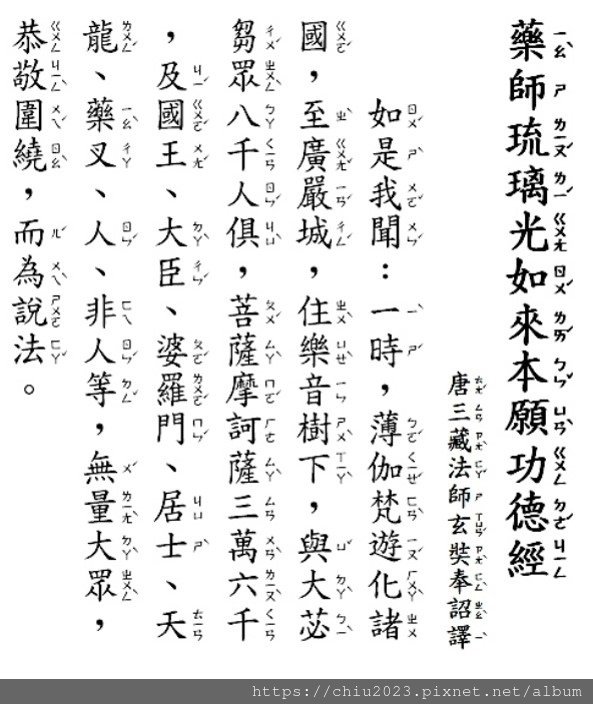 藥師琉璃光如來本願功德經
唐三藏法師玄奘奉詔譯
如是我聞：一時，薄伽梵遊化諸
國，至廣嚴城，住樂音樹下，與大苾
芻眾八千人俱，菩薩摩訶薩三萬六千
，及國王、大臣、婆羅門、居士、天
龍、藥叉、人、非人等，無量大眾，
恭敬圍繞，而為說法。
https://chiu2023.pixnet.net/album